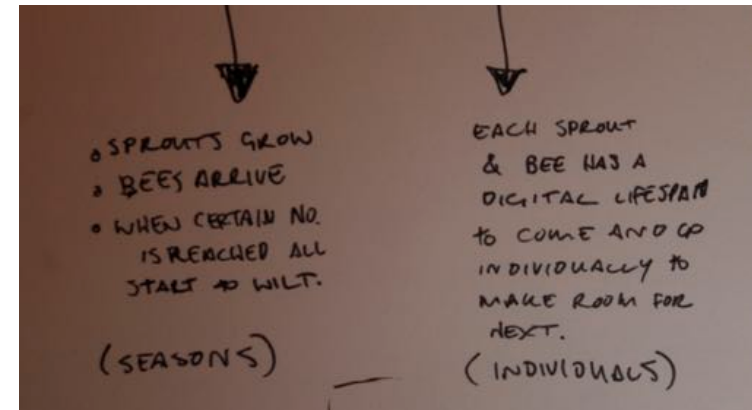 • SPROUTS GROW
• BEES ARRIVE
• WHEN CERTAIN NO.
IS REACHED ALL
START TO WILT.
(SEASONS)
EACH SPROUT
& BEE HAS A
DIGITAL LIFESPAN
TO COME AND GO
INDIVIDUALLY TO
MAKE ROOM FOR
NEXT.
(INDIVIDUALS)